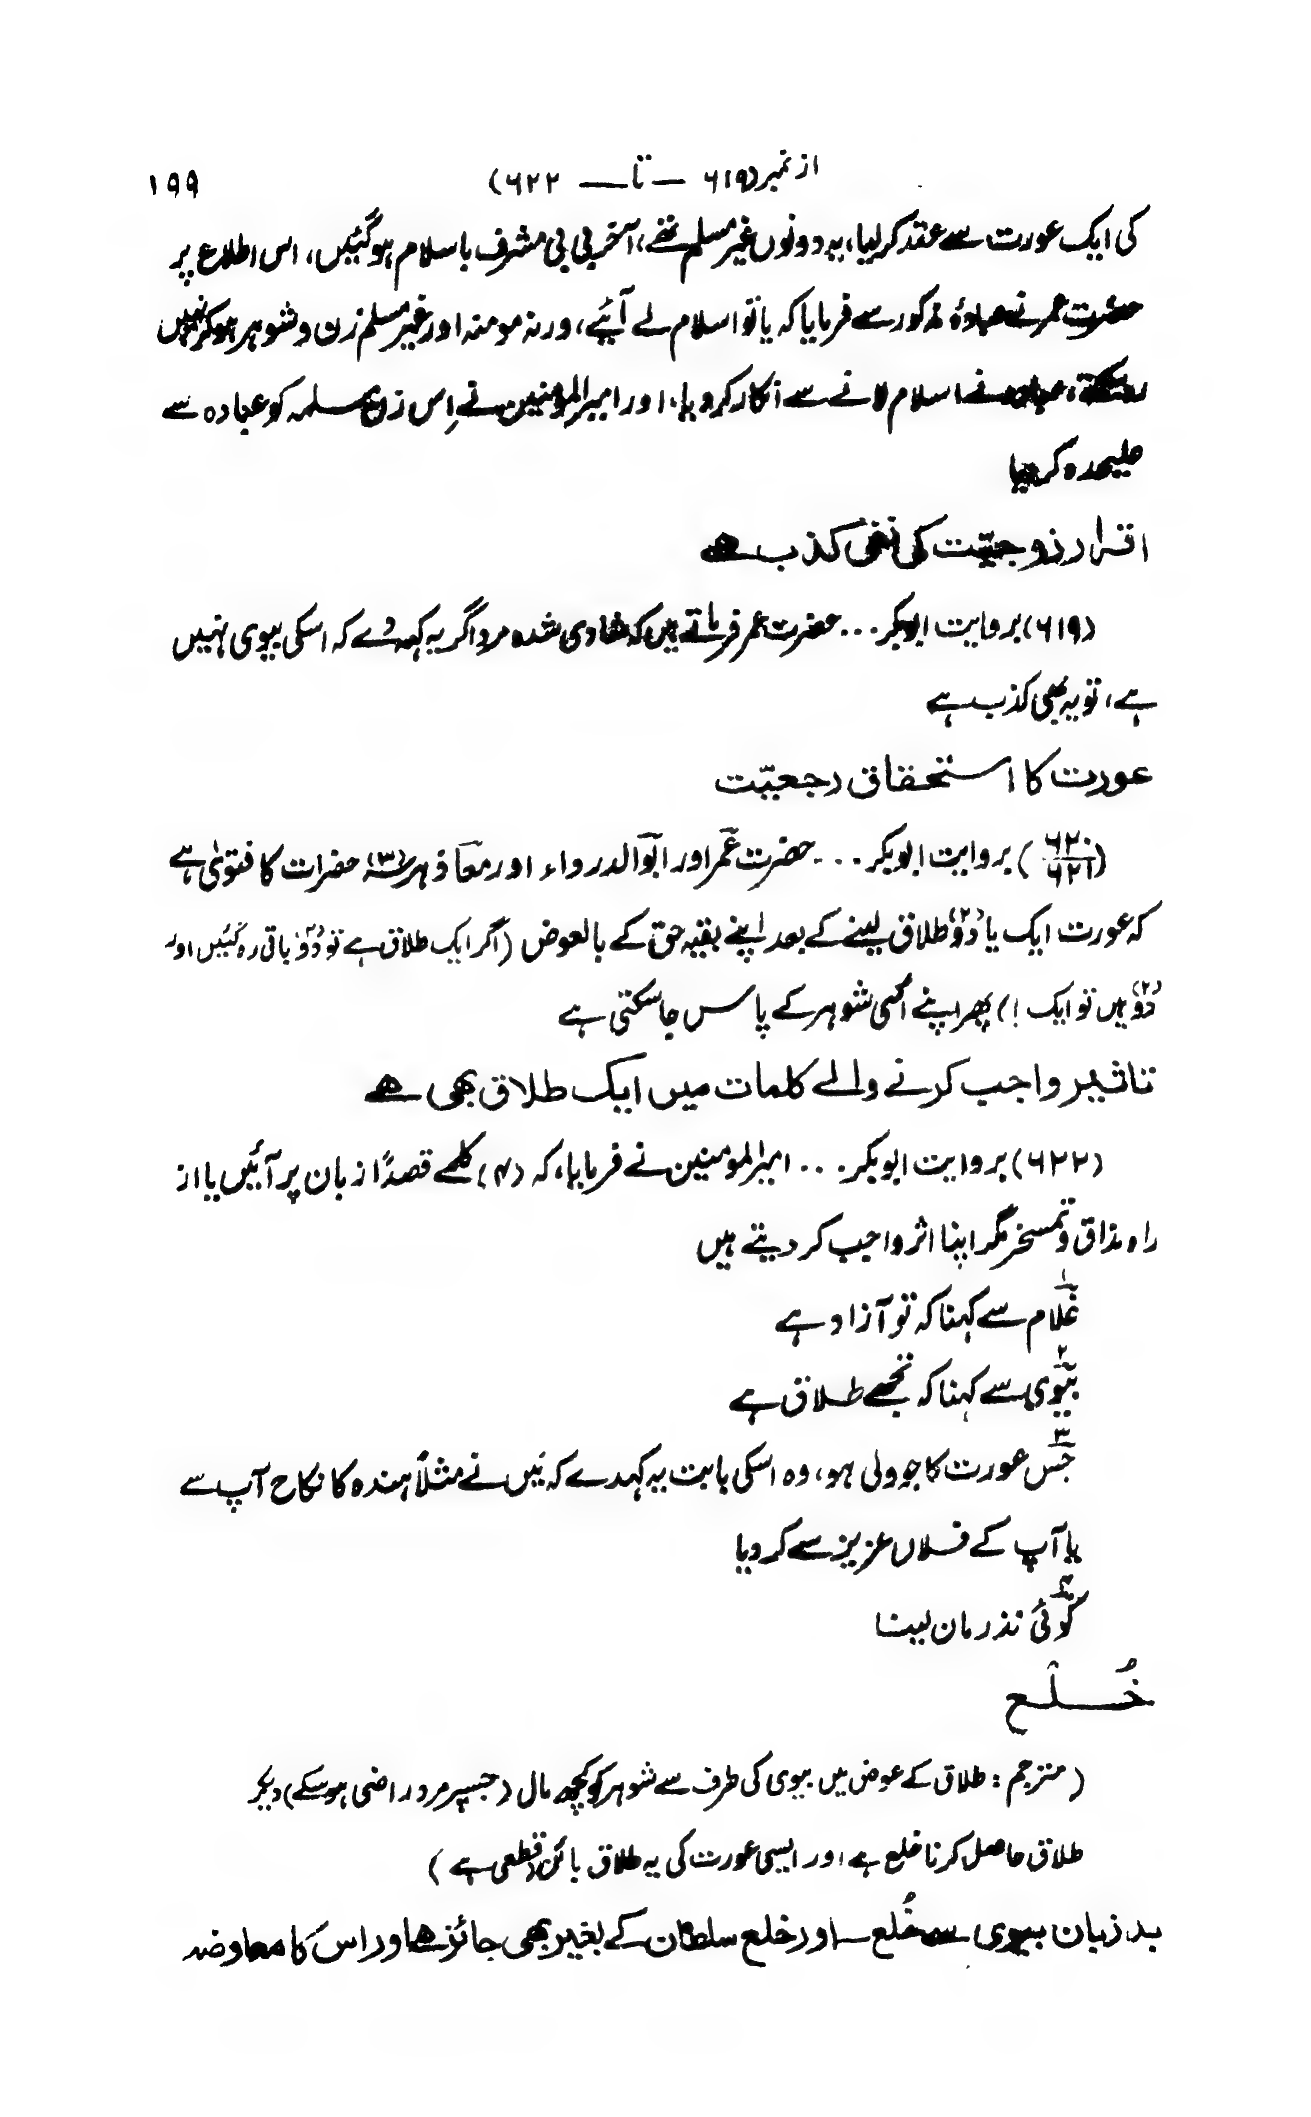 از نمبر (۶۱۹ — تا — ۶۲۲) ۱۹۹
کی ایک عورت سے عقد کر لیا، یہ دونوں غیر مسلم تھے، آخر بی بی مشرف باسلام ہوگئیں، اس اطلاع پر
حضرت عمر نے عبادۂ مذکور سے فرمایا کہ یا تو اسلام لے آیئے، ورنہ مومنہ اور غیر مسلم زن و شوہر ہو کر نہیں
رہ سکتے، عبادہ نے اسلام لانے سے انکار کر دیا، اور امیر المومنین نے اِس زن مسلمہ کو عبادہ سے
علیحدہ کر دیا
اقرار زوجیّت کی نفی کذب ہے
(۶۱۹) بروایت ابوبکر... حضرت عمر فرماتے ہیں کہ شادی شدہ مرد اگر یہ کہہ دے کہ اسکی بیوی نہیں
ہے، تو یہ بھی کذب ہے
عورت کا استحقاق رجعیّت
(۶۲۰/۶۲۱) بروایت ابوبکر... حضرت عمر اور ابوالدرداء اور معاذ ہر سہ (۳) حضرات کا فتویٰ ہے
کہ عورت ایک یا دو (۲) طلاق لینے کے بعد اپنے بقیہ حق کے بالعوض (اگر ایک طلاق ہے تو دو (۲) باقی رہ گئیں اور
دو (۲) ہیں تو ایک !) پھر اپنے اُسی شوہر کے پاس جا سکتی ہے
تاثیر واجب کرنے والے کلمات میں ایک طلاق بھی ہے
(۶۲۲) بروایت ابوبکر... امیر المومنین نے فرمایا، کہ (۴) کلمے قصدًا زبان پر آئیں یا از
راہ مذاق و تمسخر مگر اپنا اثر واجب کر دیتے ہیں
۱ غلام سے کہنا کہ تو آزاد ہے
۲ بیوی سے کہنا کہ تجھے طلاق ہے
۳ جس عورت کا جو ولی ہو، وہ اسکی بابت یہ کہدے کہ میں نے مثلاً ہندہ کا نکاح آپ سے
یا آپ کے فلاں عزیز سے کر دیا
۴ کوئی نذر مان لینا
خُلع
(مترجم: طلاق کے عوض میں بیوی کی طرف سے شوہر کو کچھ مال (جسپر مرد راضی ہو سکے) دیکر
طلاق حاصل کرنا خلع ہے اور ایسی عورت کی یہ طلاق بائن (قطعی ہے)
بد زبان بیوی سے خُلع — اور خلع سلطان کے بغیر بھی جائز ہے اور اس کا معاوضہ